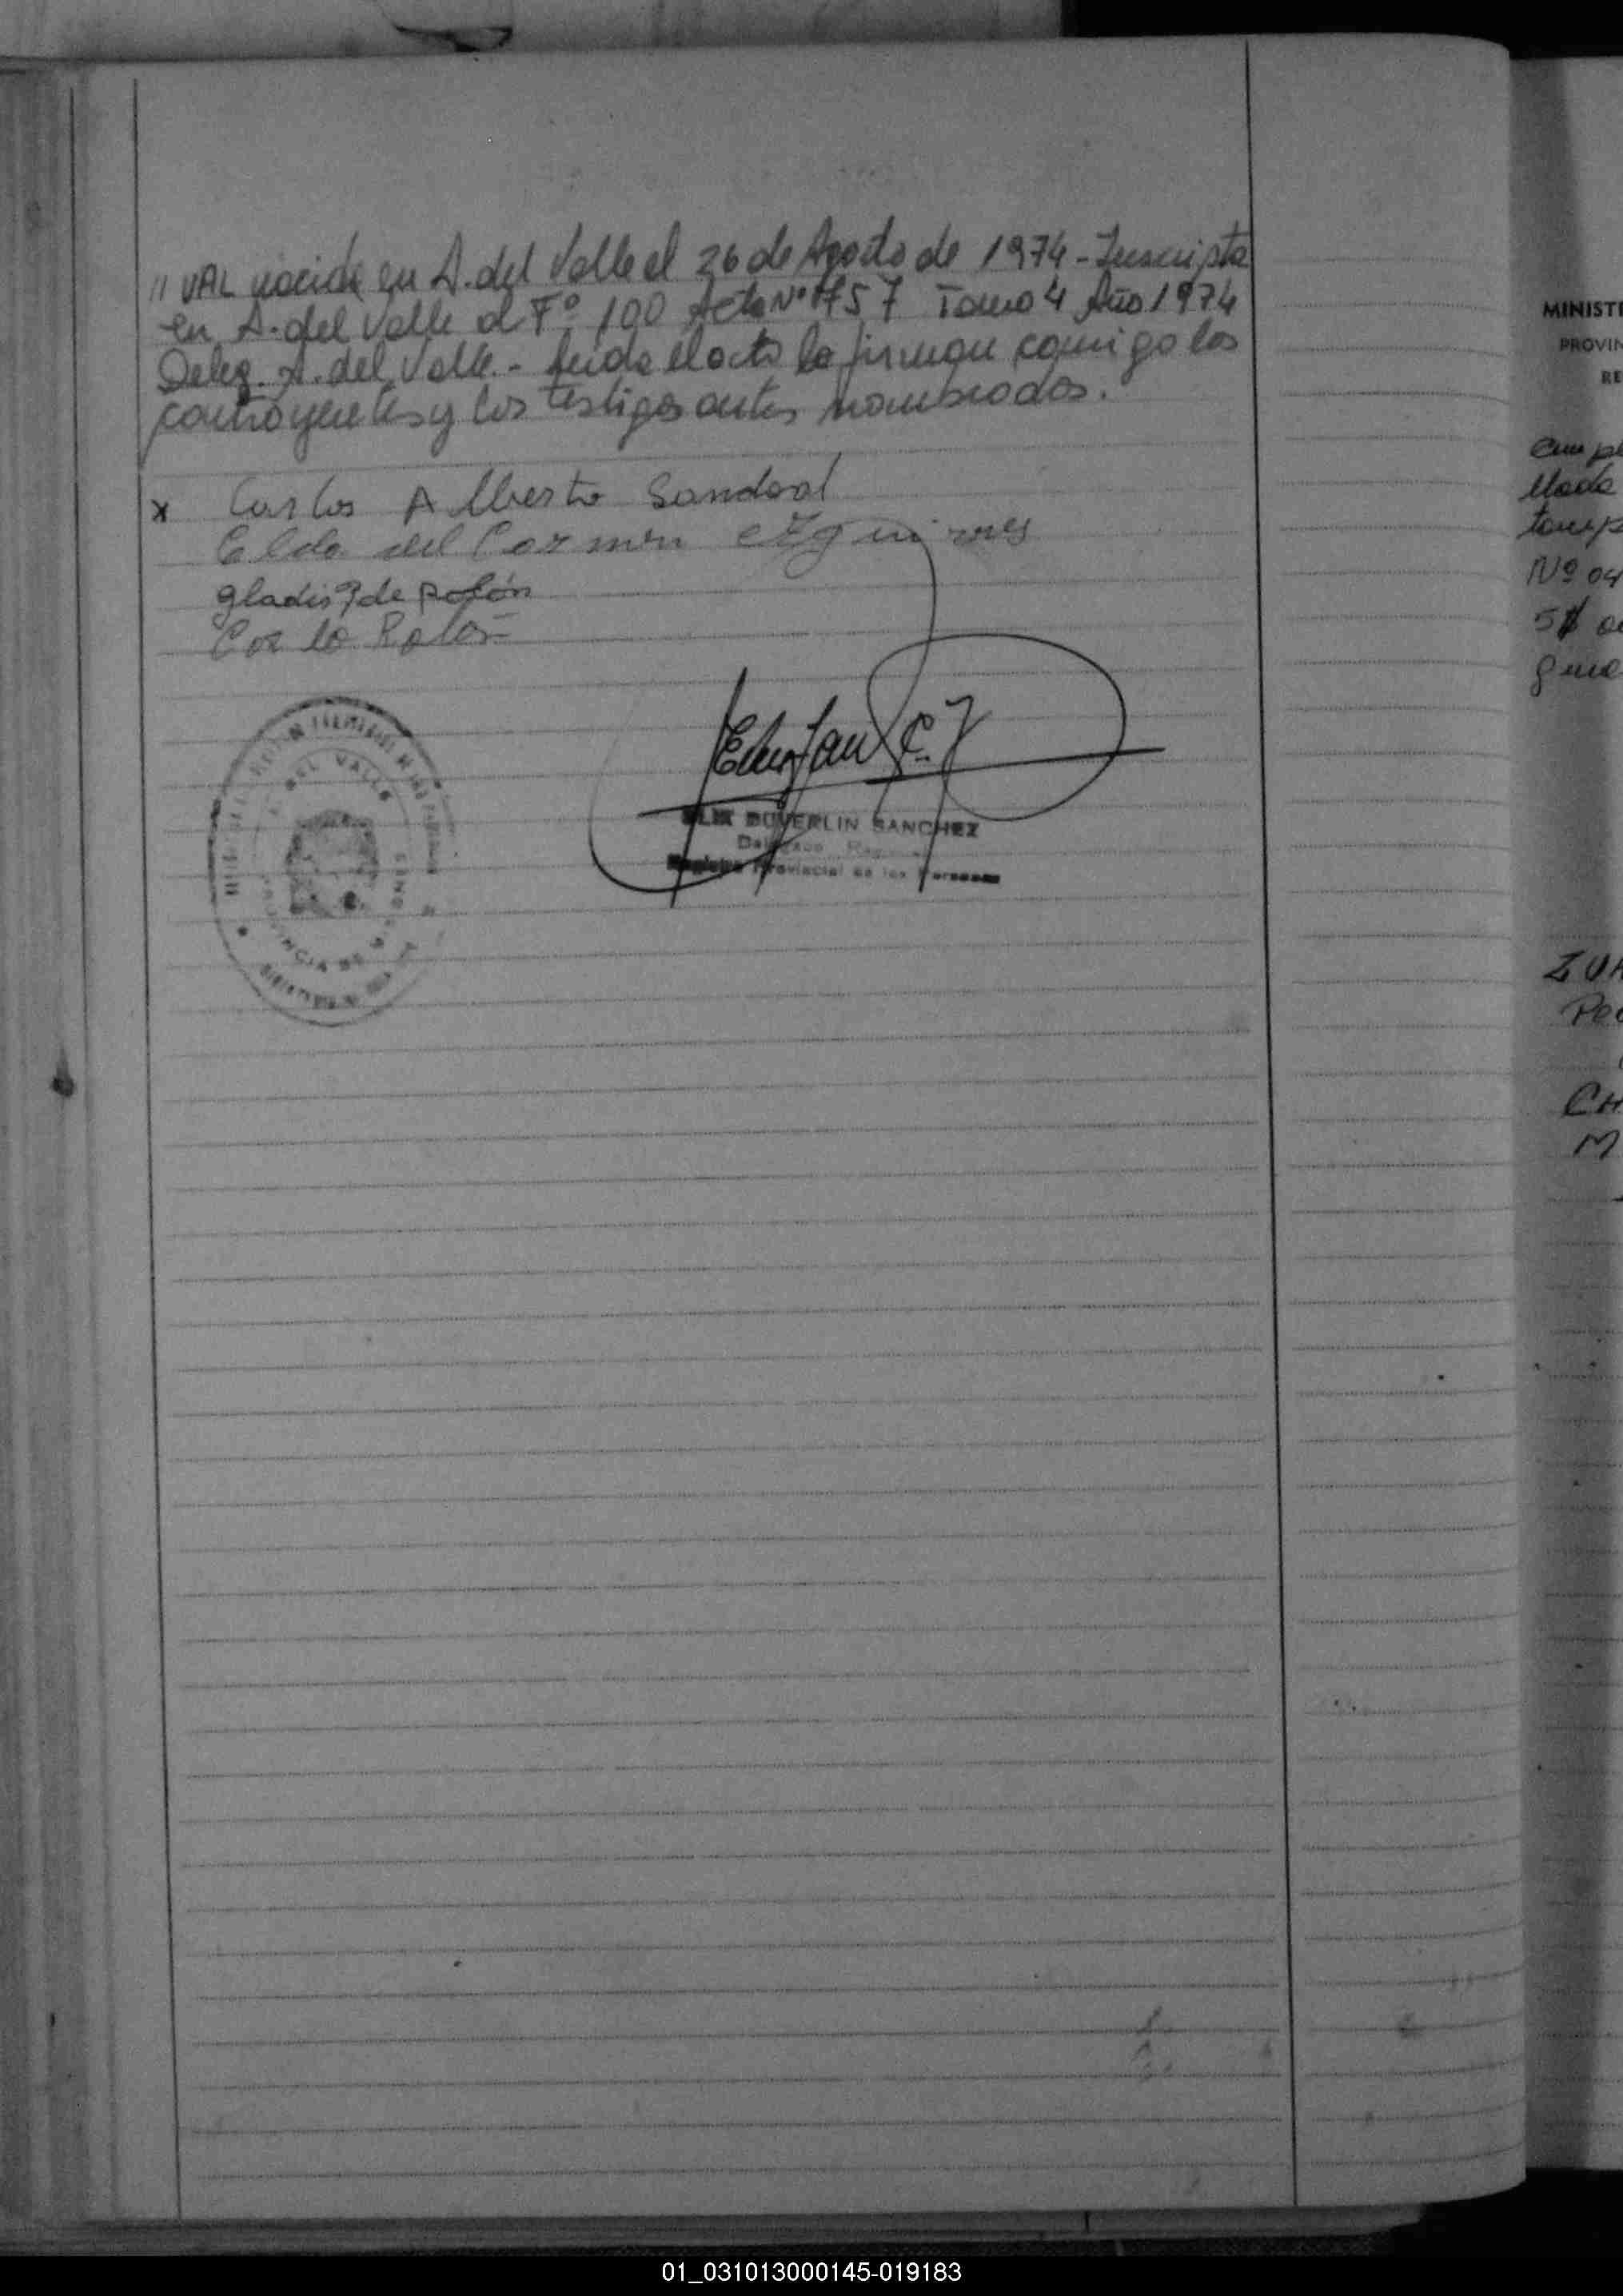 11 VAL nacida en A. del Valle el 26 de Agosto de 1974 - Inscripta
en A. del Valle al Fº 100 Acta Nº 1757 Tomo 4 Año 1974
Deleg. A. del Valle. - Leida el acta la firman conmigo los
contrayentes y los testigos antes nombrados.
x Carlos Alberto Sandoval
Elda del Carmen
gladis de Rolón
Rolón
DEL VALLE
PROVINCIA DE
DUVERLIN SANCHEZ
Registro Provincial de las Personas
MINISTE
PROVIN
RE
emple
llada
Nº 04
ZUA
CH
M
01_031013000145-019183